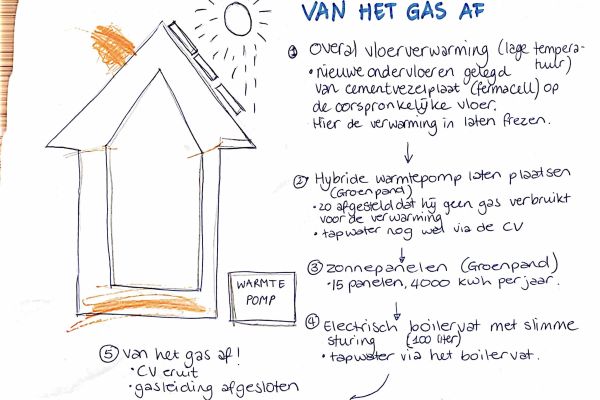 VAN HET GAS AF
① Overal vloerverwarming (lage tempera-
tuur)
• nieuwe ondervloeren gelegd
van cementvezelplaat (fermacell) op
de oorspronkelijke vloer.
Hier de verwarming in laten frezen.
② Hybride warmtepomp laten plaatsen
(Groenpand)
• zo afgesteld dat hij geen gas verbruikt
voor de verwarming
• tapwater nog wel via de CV
③ zonnepanelen (Groenpand)
• 15 panelen, 4000 kWh per jaar.
④ Electrisch boilervat met slimme
sturing (100 liter)
• tapwater via het boilervat.
WARMTE
POMP
⑤ Van het gas af!
• CV eruit
• gasleiding afgesloten